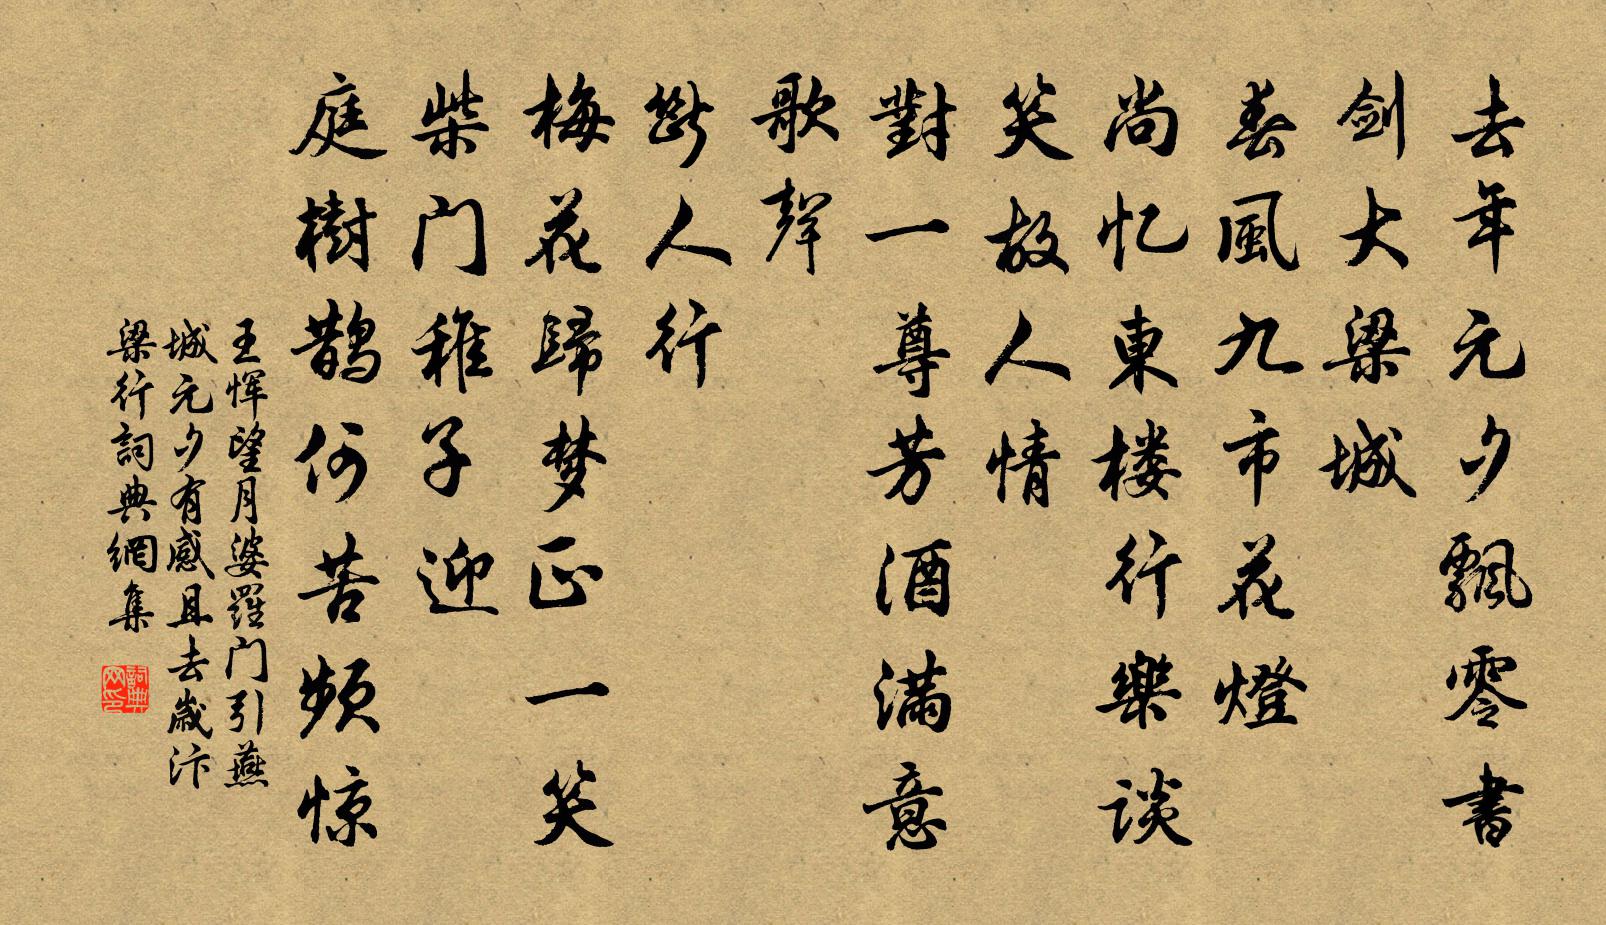 去年元夕飄零書
剑大梁城
春風九市花燈
尚忆東楼行樂谈
笑故人情
對一尊芳酒滿意
歌聲
斷人行
梅花歸梦正一笑
柴门稚子迎
庭樹鹊何苦频惊
王恽望月婆羅门引燕
城元夕有感且去歲汴
梁行詞典網集
詞典网印